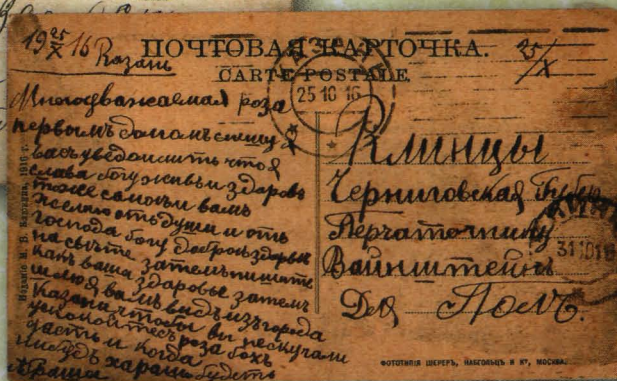 19 25/X 16
Казань
ПОЧТОВАЯ КАРТОЧКА.
CARTE POSTALE.
25/X
КАЗАНЬ
25 10 16
Многоуважаемая роза
первымъ домомъ спешу я
васъ уведомить что я
слава богу живъ и здоровъ
тоже самои и вамъ
желаю отъ души и отъ
господа богу доброй здоровье
на свѣте затемъ пишите
какъ ваша здоровье затемъ
шлю я вамъ видъ изъ города
Казана чтобы вы нескучали
успокойтесь роза бохъ
дасть и когда
нибудь харашо будеть
Абраша
Клинцы
Черниговская Губер
Перчаточнику
Вайнштейнъ
Для Полъ.
31 10 16
Изданіе М. В. 1916 г.
ФОТОТИПІЯ ШЕРЕРЪ, НАБГОЛЬЦЪ И К°, МОСКВА.